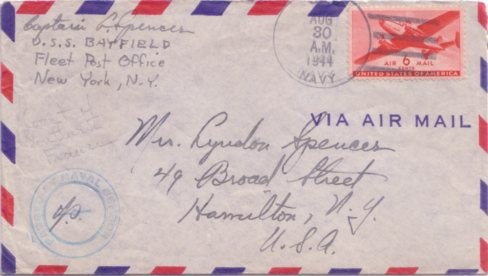 Captain L. Spencer
U.S.S. BAYFIELD
Fleet Post Office
New York, N.Y.
AUG
30
A.M.
1944
NAVY
AIR 6 MAIL
CENTS
UNITED STATES OF AMERICA
VIA AIR MAIL
Mrs. Lyndon Spencer
49 Broad Street
Hamilton, N.Y.
U.S.A.
PASSED BY NAVAL CENSOR